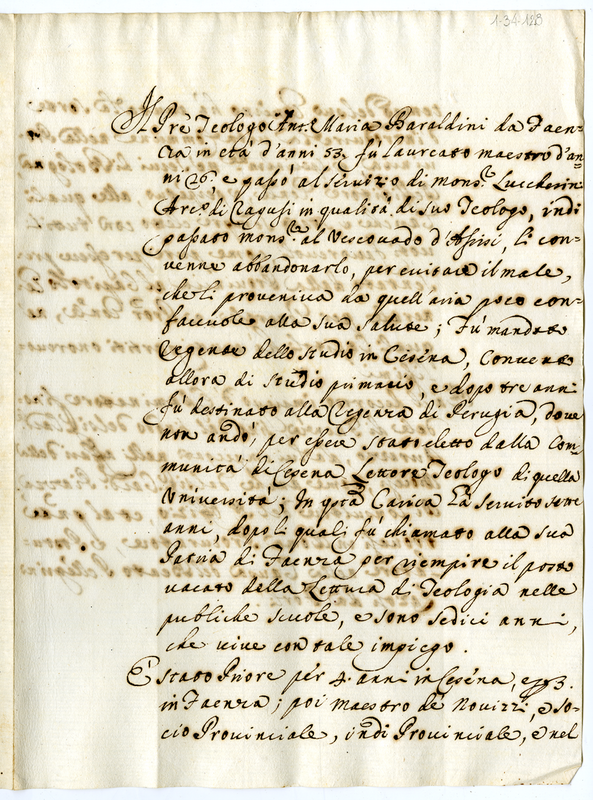 1-34-123
Il Prê Teologo Ant.º Maria Baraldini da Faen=
za in età d'anni 53. fù laureato maestro d'an=
ni 26. e passò al servizio di mons.r Luccherin
Arc.º di Ragusi in qualità di suo Teologo, indi
passato mons.r al Vescovado d'Assisi, li con=
venne abbandonarlo, per evitare il male,
che li proveniva da quell'aria poco con=
faccuole alla sua salute; Fù mandato
Regente dello studio in Cesena, Convento
allora di studio primario, e dopo tre anni
fù destinato alla Regenza di Perugia, dove
non andò, per essere stato eletto dalla Com=
munità di Cesena Lettore Teologo di quella
Università; In qsta Carica hà servito sette
anni, dopo li quali fù chiamato alla sua
Patria di Faenza per riempire il posto
vacato della Lettura di Teologia nelle
publiche scuole, e sono sedici anni,
che vive con tale impiego.
È stato Priore per 4. anni in Cesena, e 3.
in Faenza; poi maestro de Novizzi, e So=
cio Provinciale, indi Provinciale, e nel